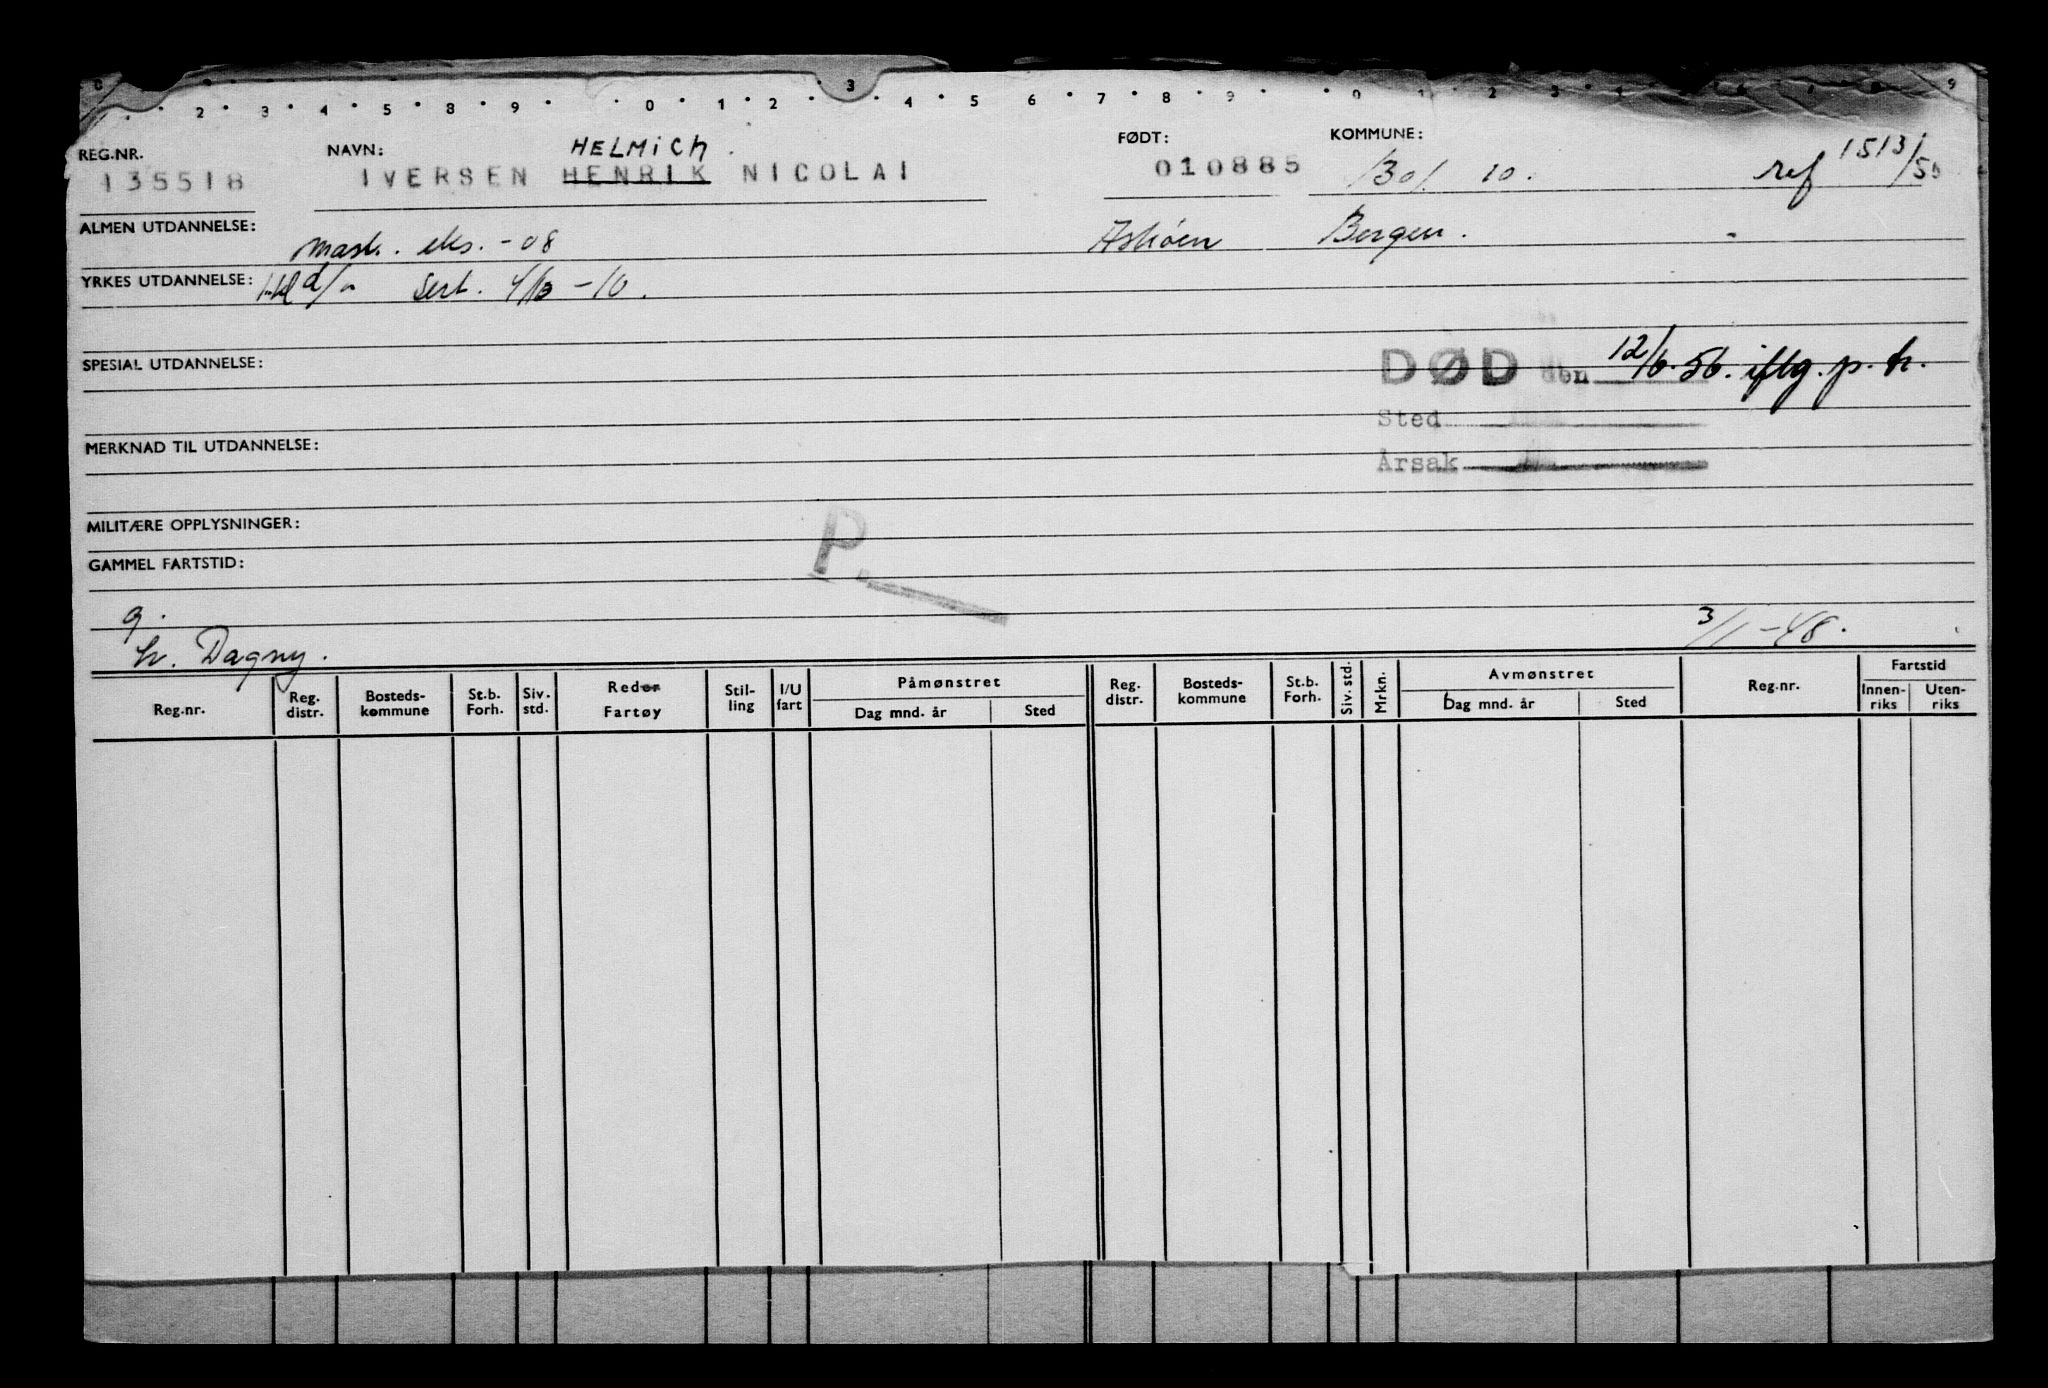 2 3 4 5 8 9 0 1 2 3 4 5 6 7 8 9 0 1 2 3 9
HELMICH.
REG.NR. NAVN: FØDT: KOMMUNE:
135518 IVERSEN HENRIK NICOLAI 010885 1301 10. ref 1513/56
ALMEN UTDANNELSE: mask. eks. -08 Askøen Bergen.
YRKES UTDANNELSE: sert. -10.
SPESIAL UTDANNELSE: DØD den 12/6.56. iflg. p.k.
Sted
MERKNAD TIL UTDANNELSE: Årsak
MILITÆRE OPPLYSNINGER: P.
GAMMEL FARTSTID:
g. 3/1-48.
h. Dagny.
Reg.nr. Reg. distr. Bosteds-kommune St.b. Forh. Siv. std. Reder Fartøy Stil-ling I/U fart Påmønstret Dag mnd. år Sted Reg. distr. Bosteds-kommune St.b. Forh. Siv. std. Mrkn. Avmønstret Dag mnd. år Sted Reg.nr. Fartstid Innen-riks Uten-riks